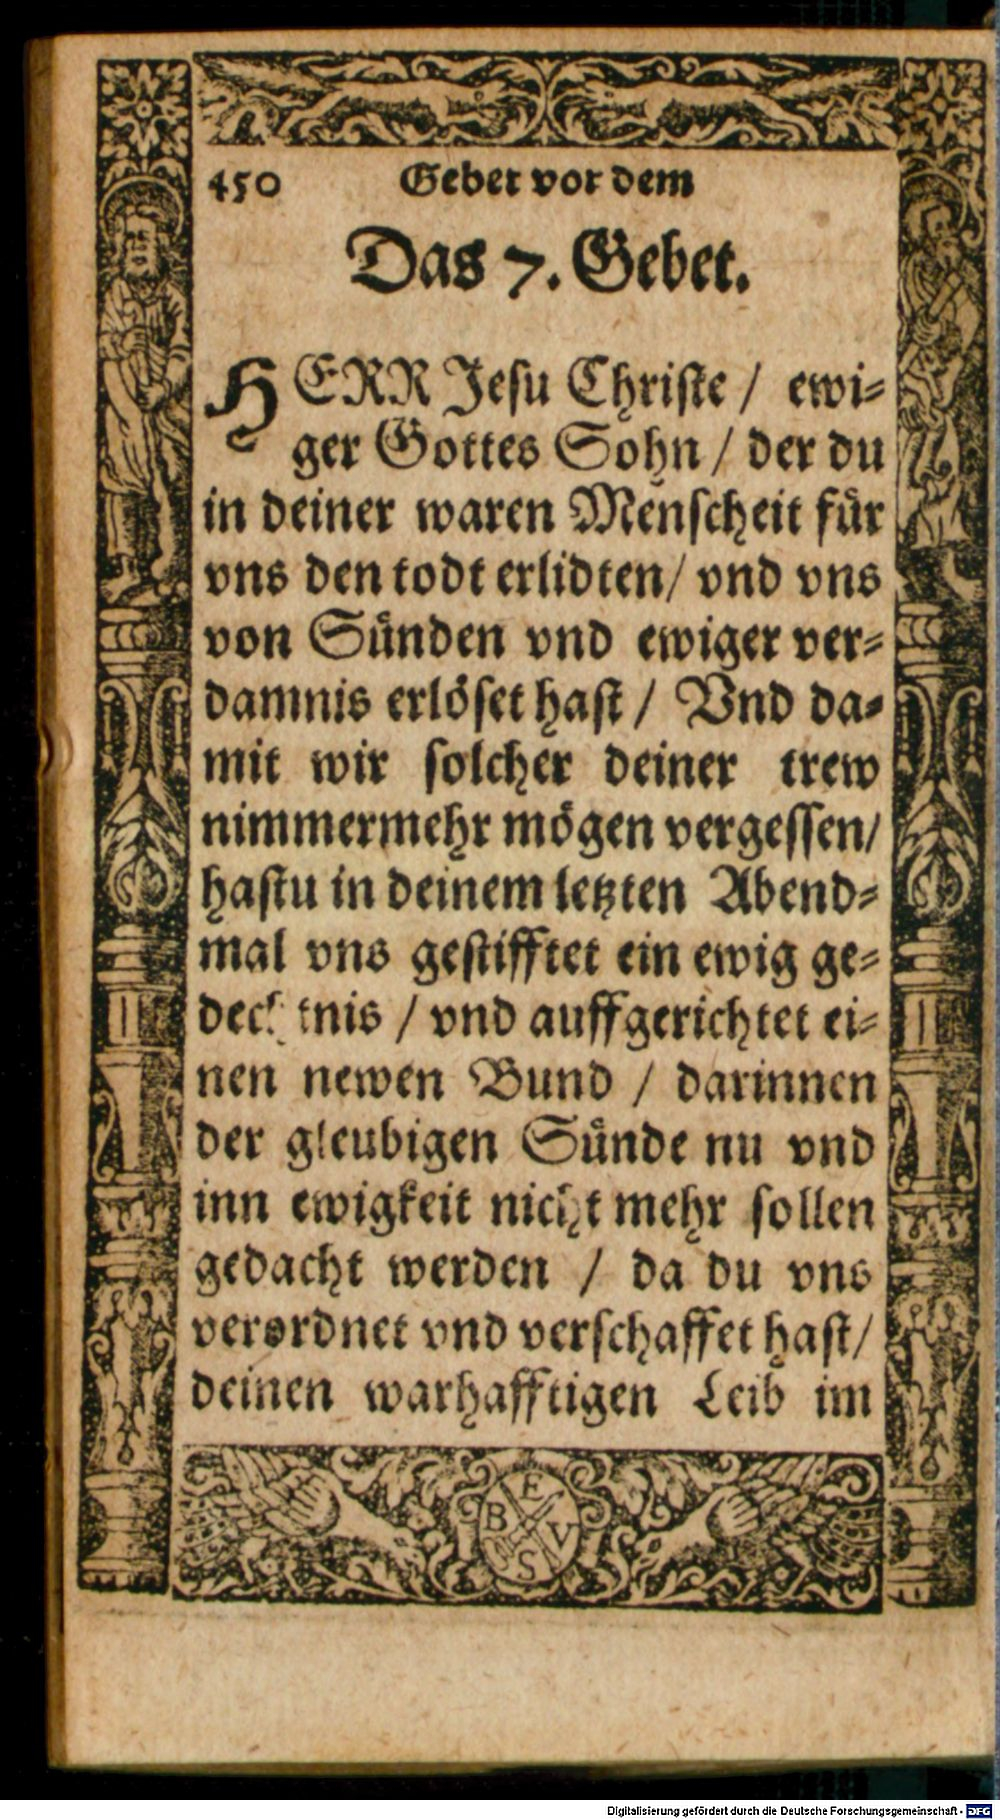 450 Gebet vor dem
Das 7. Gebet.
HERR Jesu Christe / ewi-
ger Gottes Sohn / der du
in deiner waren Menscheit für
vns den todt erlidten / vnd vns
von Sünden vnd ewiger ver-
damnis erlöset hast / Vnd da-
mit wir solcher deiner trew
nimmermehr mögen vergessen /
hastu in deinem letzten Abend-
mal vns gestifftet ein ewig ge-
dechtnis / vnd auffgerichtet ei-
nen newen Bund / darinnen
der gleubigen Sünde nu vnd
inn ewigkeit nicht mehr sollen
gedacht werden / da du vns
verordnet vnd verschaffet hast /
deinen warhafftigen Leib im
E
B V
S
Digitalisierung gefördert durch die Deutsche Forschungsgemeinschaft - DFG